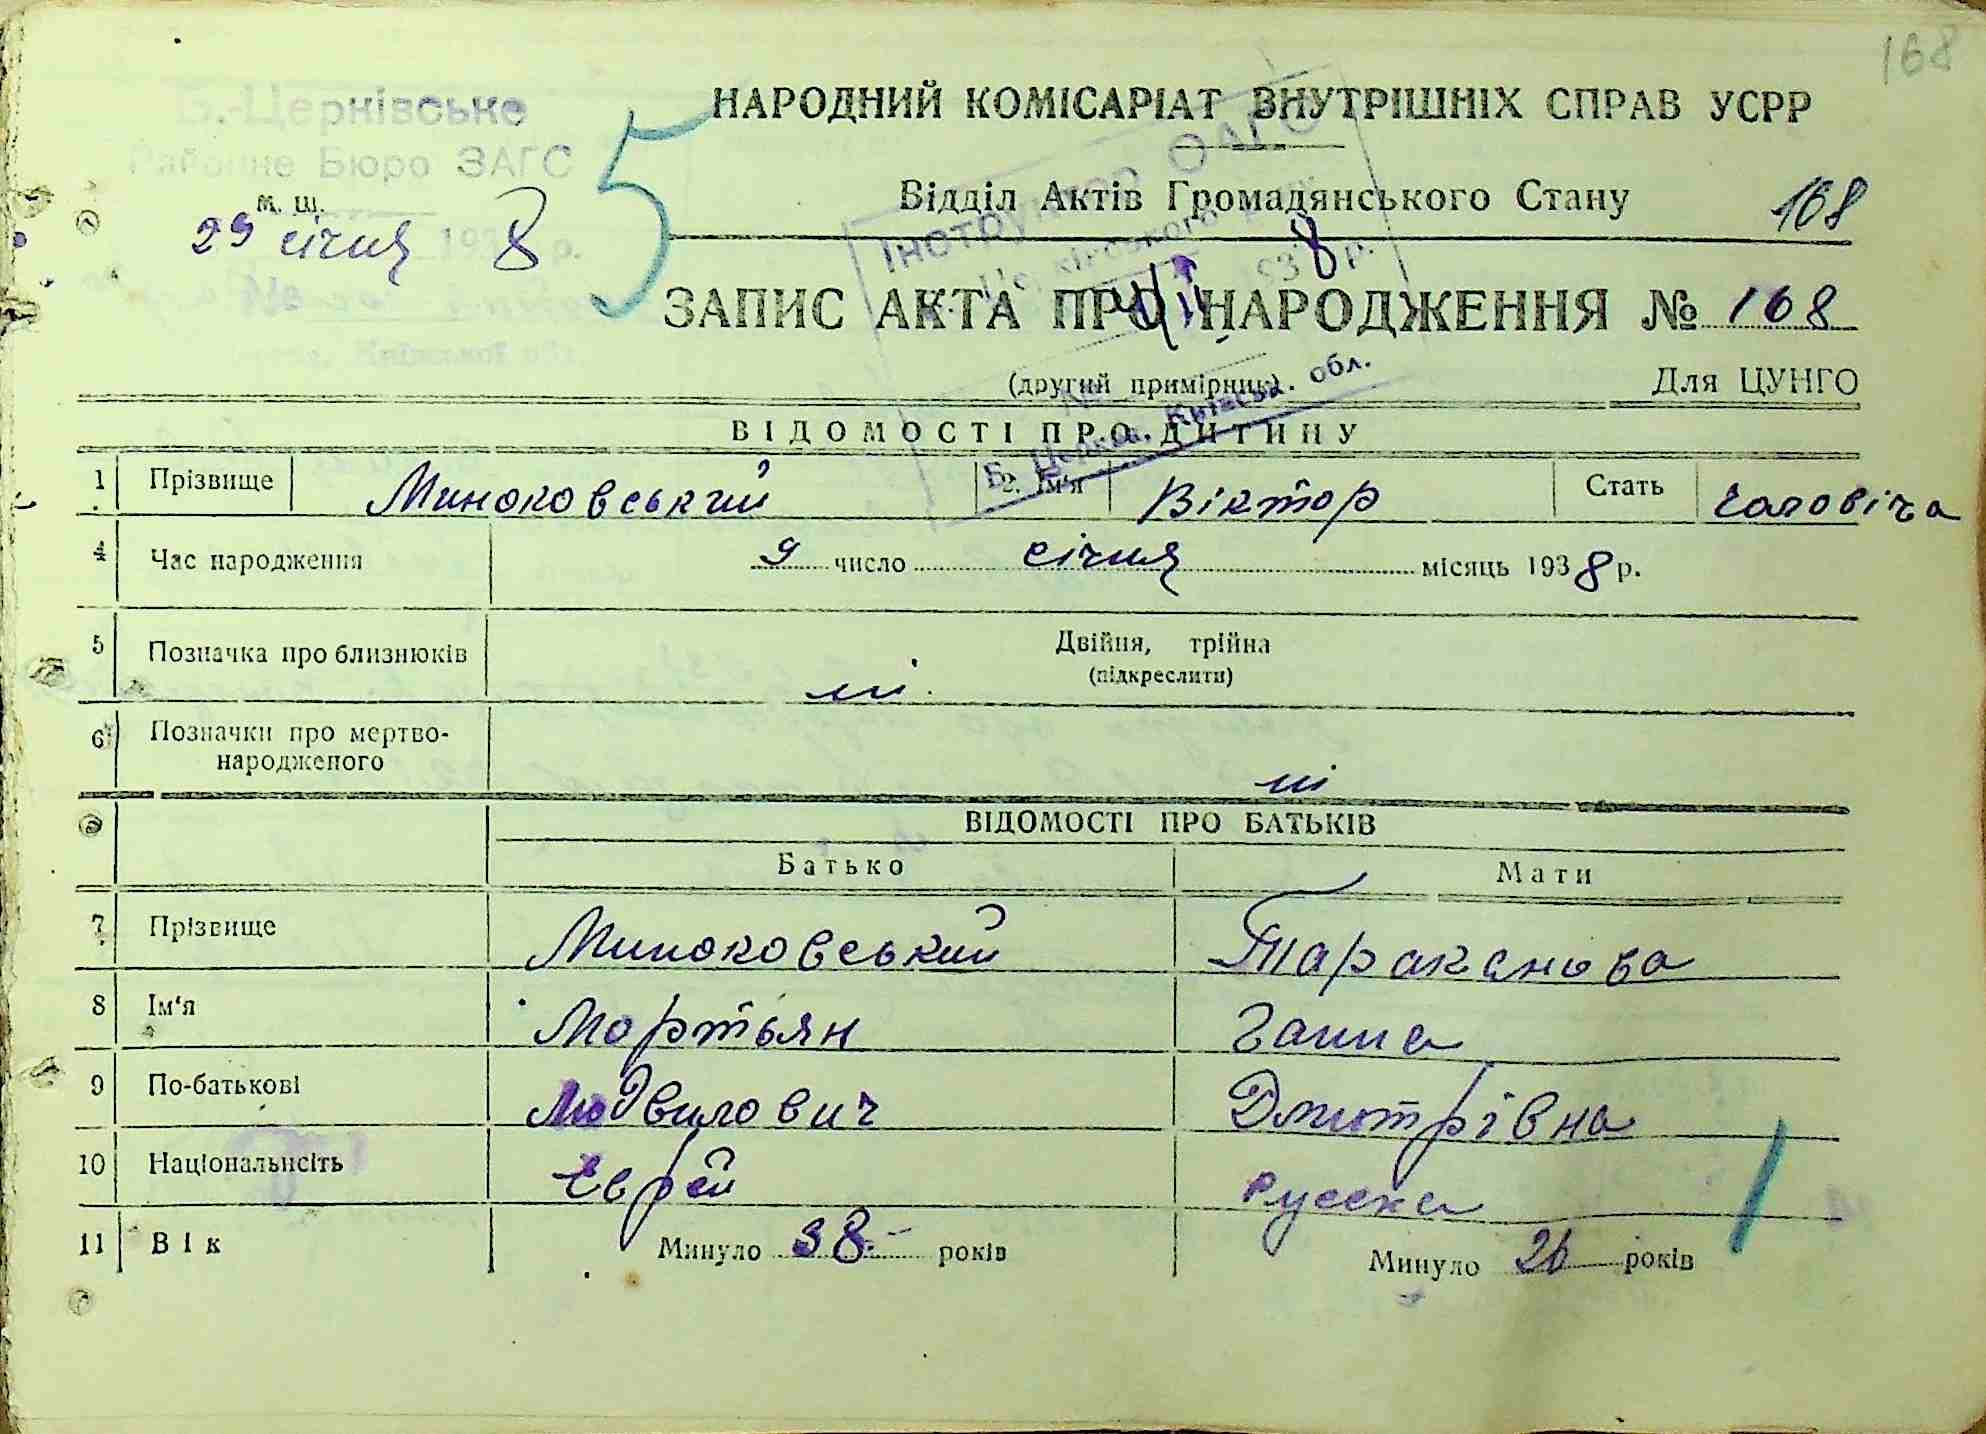 168
Б.-Церківське
Районне Бюро ЗАГС
м. ш.
29 січня 1938 р.
5
НАРОДНИЙ КОМІСАРІАТ ВНУТРІШНІХ СПРАВ УСРР
Відділ Актів Громадянського Стану
168
Інструктор ОАГС
193 8 р.
ЗАПИС АКТА ПРО НАРОДЖЕННЯ № 168
(другий примірник)
Для ЦУНГО
Б. Церква, Київськ. обл.
ВІДОМОСТІ ПРО ДИТИНУ
1 Прізвище Миноковський 2. Ім'я Віктор Стать чоловіча
4 Час народження 9 число січня місяць 1938 р.
5 Позначка про близнюків Двійня, трійня
(підкреслити)
ні
6 Позначки про мертво-
народженого ні
ВІДОМОСТІ ПРО БАТЬКІВ
Батько Мати
7 Прізвище Миноковський Тараканова
8 Ім'я Мортьян Ганна
9 По-батькові Людвилович Дмитрівна
10 Національність Єврей Русска
11 Вік Минуло 38 років Минуло 26 років